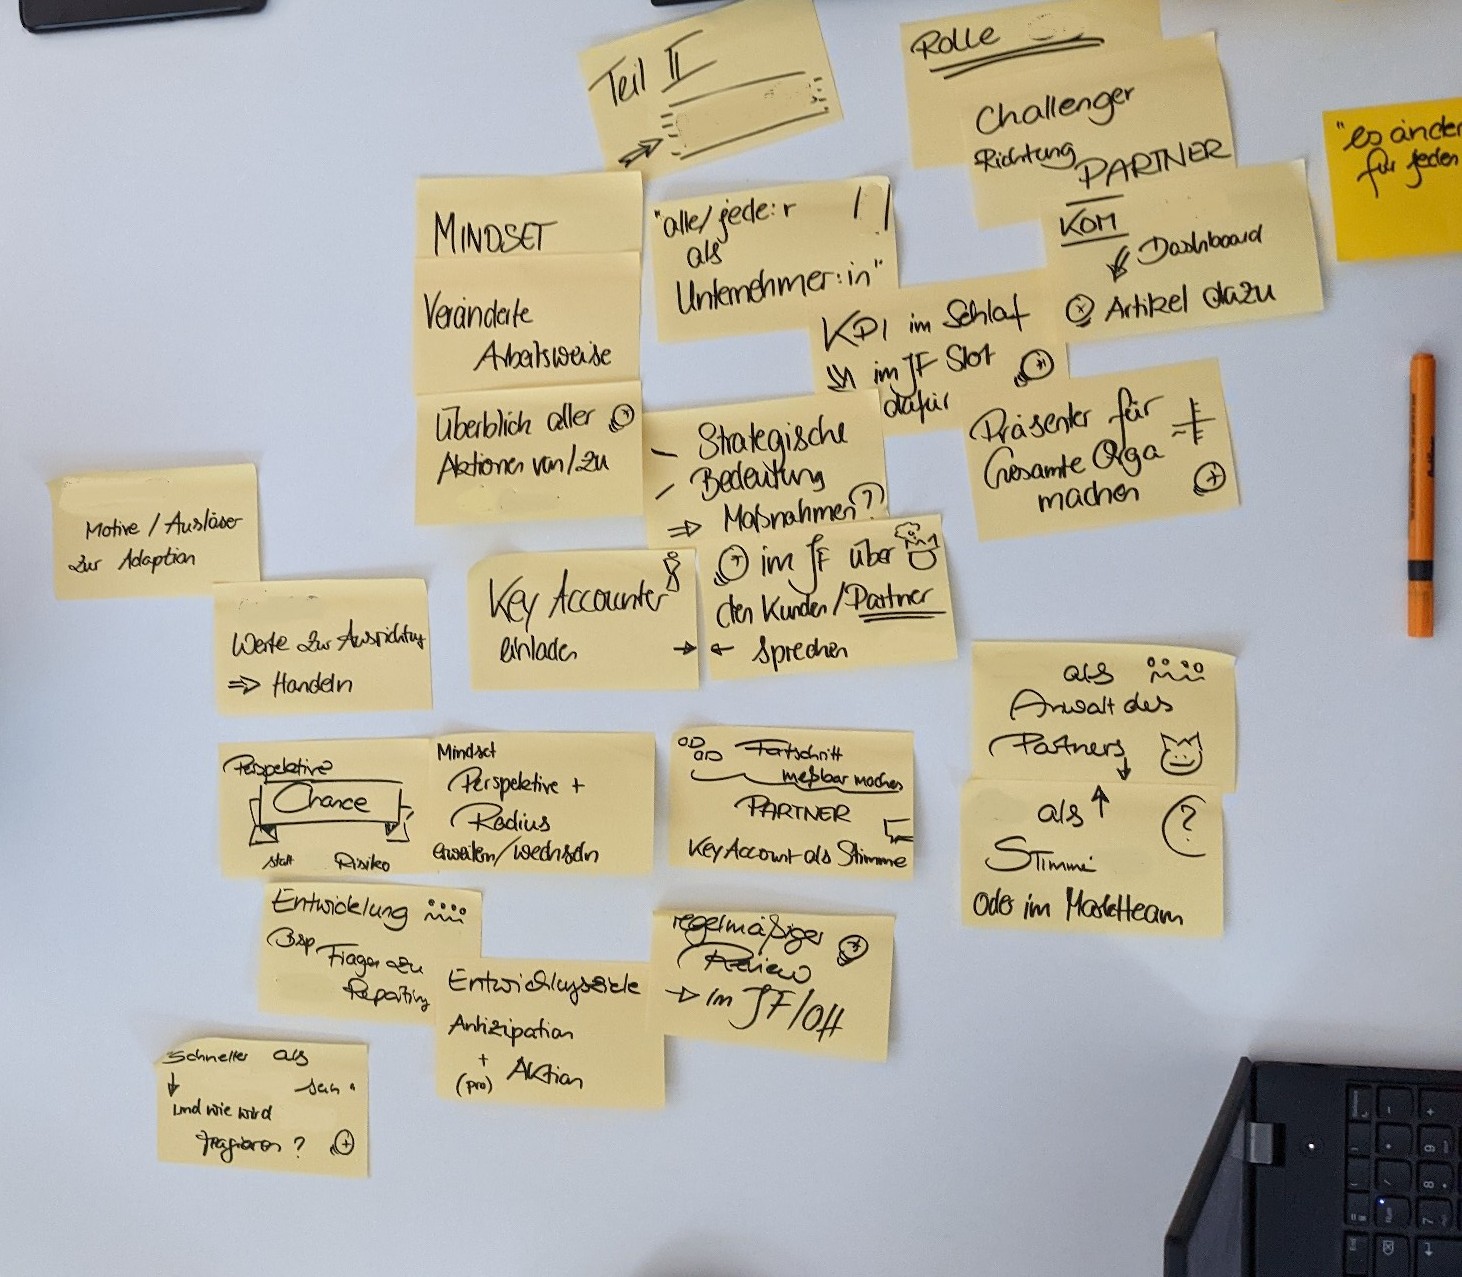 Teil II
Rolle
Challenger
Richtung
PARTNER
"es änder
für jeden
MINDSET
Veränderte
Arbeitsweise
Überblick aller
Aktionen von/zu
"alle/jede:r
als
Unternehmer:in"
!!
KOM
Dashboard
Artikel dazu
KPI im Schlaf
im JF Slot
dafür
Präsenter für
Gesamte Orga
machen
Strategische
Bedeutung
⇒ Maßnahmen?
Motive / Auslöser
zur Adaption
Werte zur Ausrichtung
⇒ Handeln
Key Accounter
einladen →
im JF über
den Kunden/Partner
← sprechen
als
Anwalt des
Partners ↓
als ↑
Stimme
oder im Marktteam
?
Perspektive
Chance
statt Risiko
Mindset
Perspektive +
Radius
erweitern/wechseln
Fortschritt
meßbar machen
PARTNER
Key Account als Stimme
Entwicklung
Bsp Fragen zu
Reporting
Entwicklungsziele
Antizipation
+
(pro) Aktion
regelmäßiger
Review
→ im JF/Off
Schneller als
sein
↓
und wie wird
?